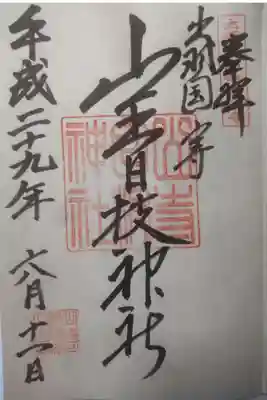 奉拝
出羽国山寺
山王日枝神社
平成二十九年
八月十一日
山寺
日枝
神社